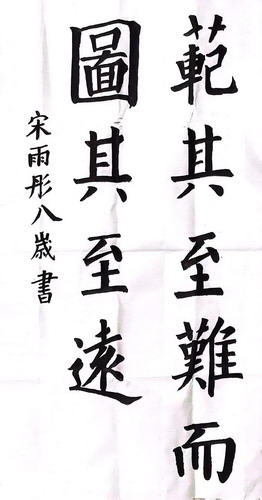 範其至難而
圖其至遠
宋雨彤八歲書